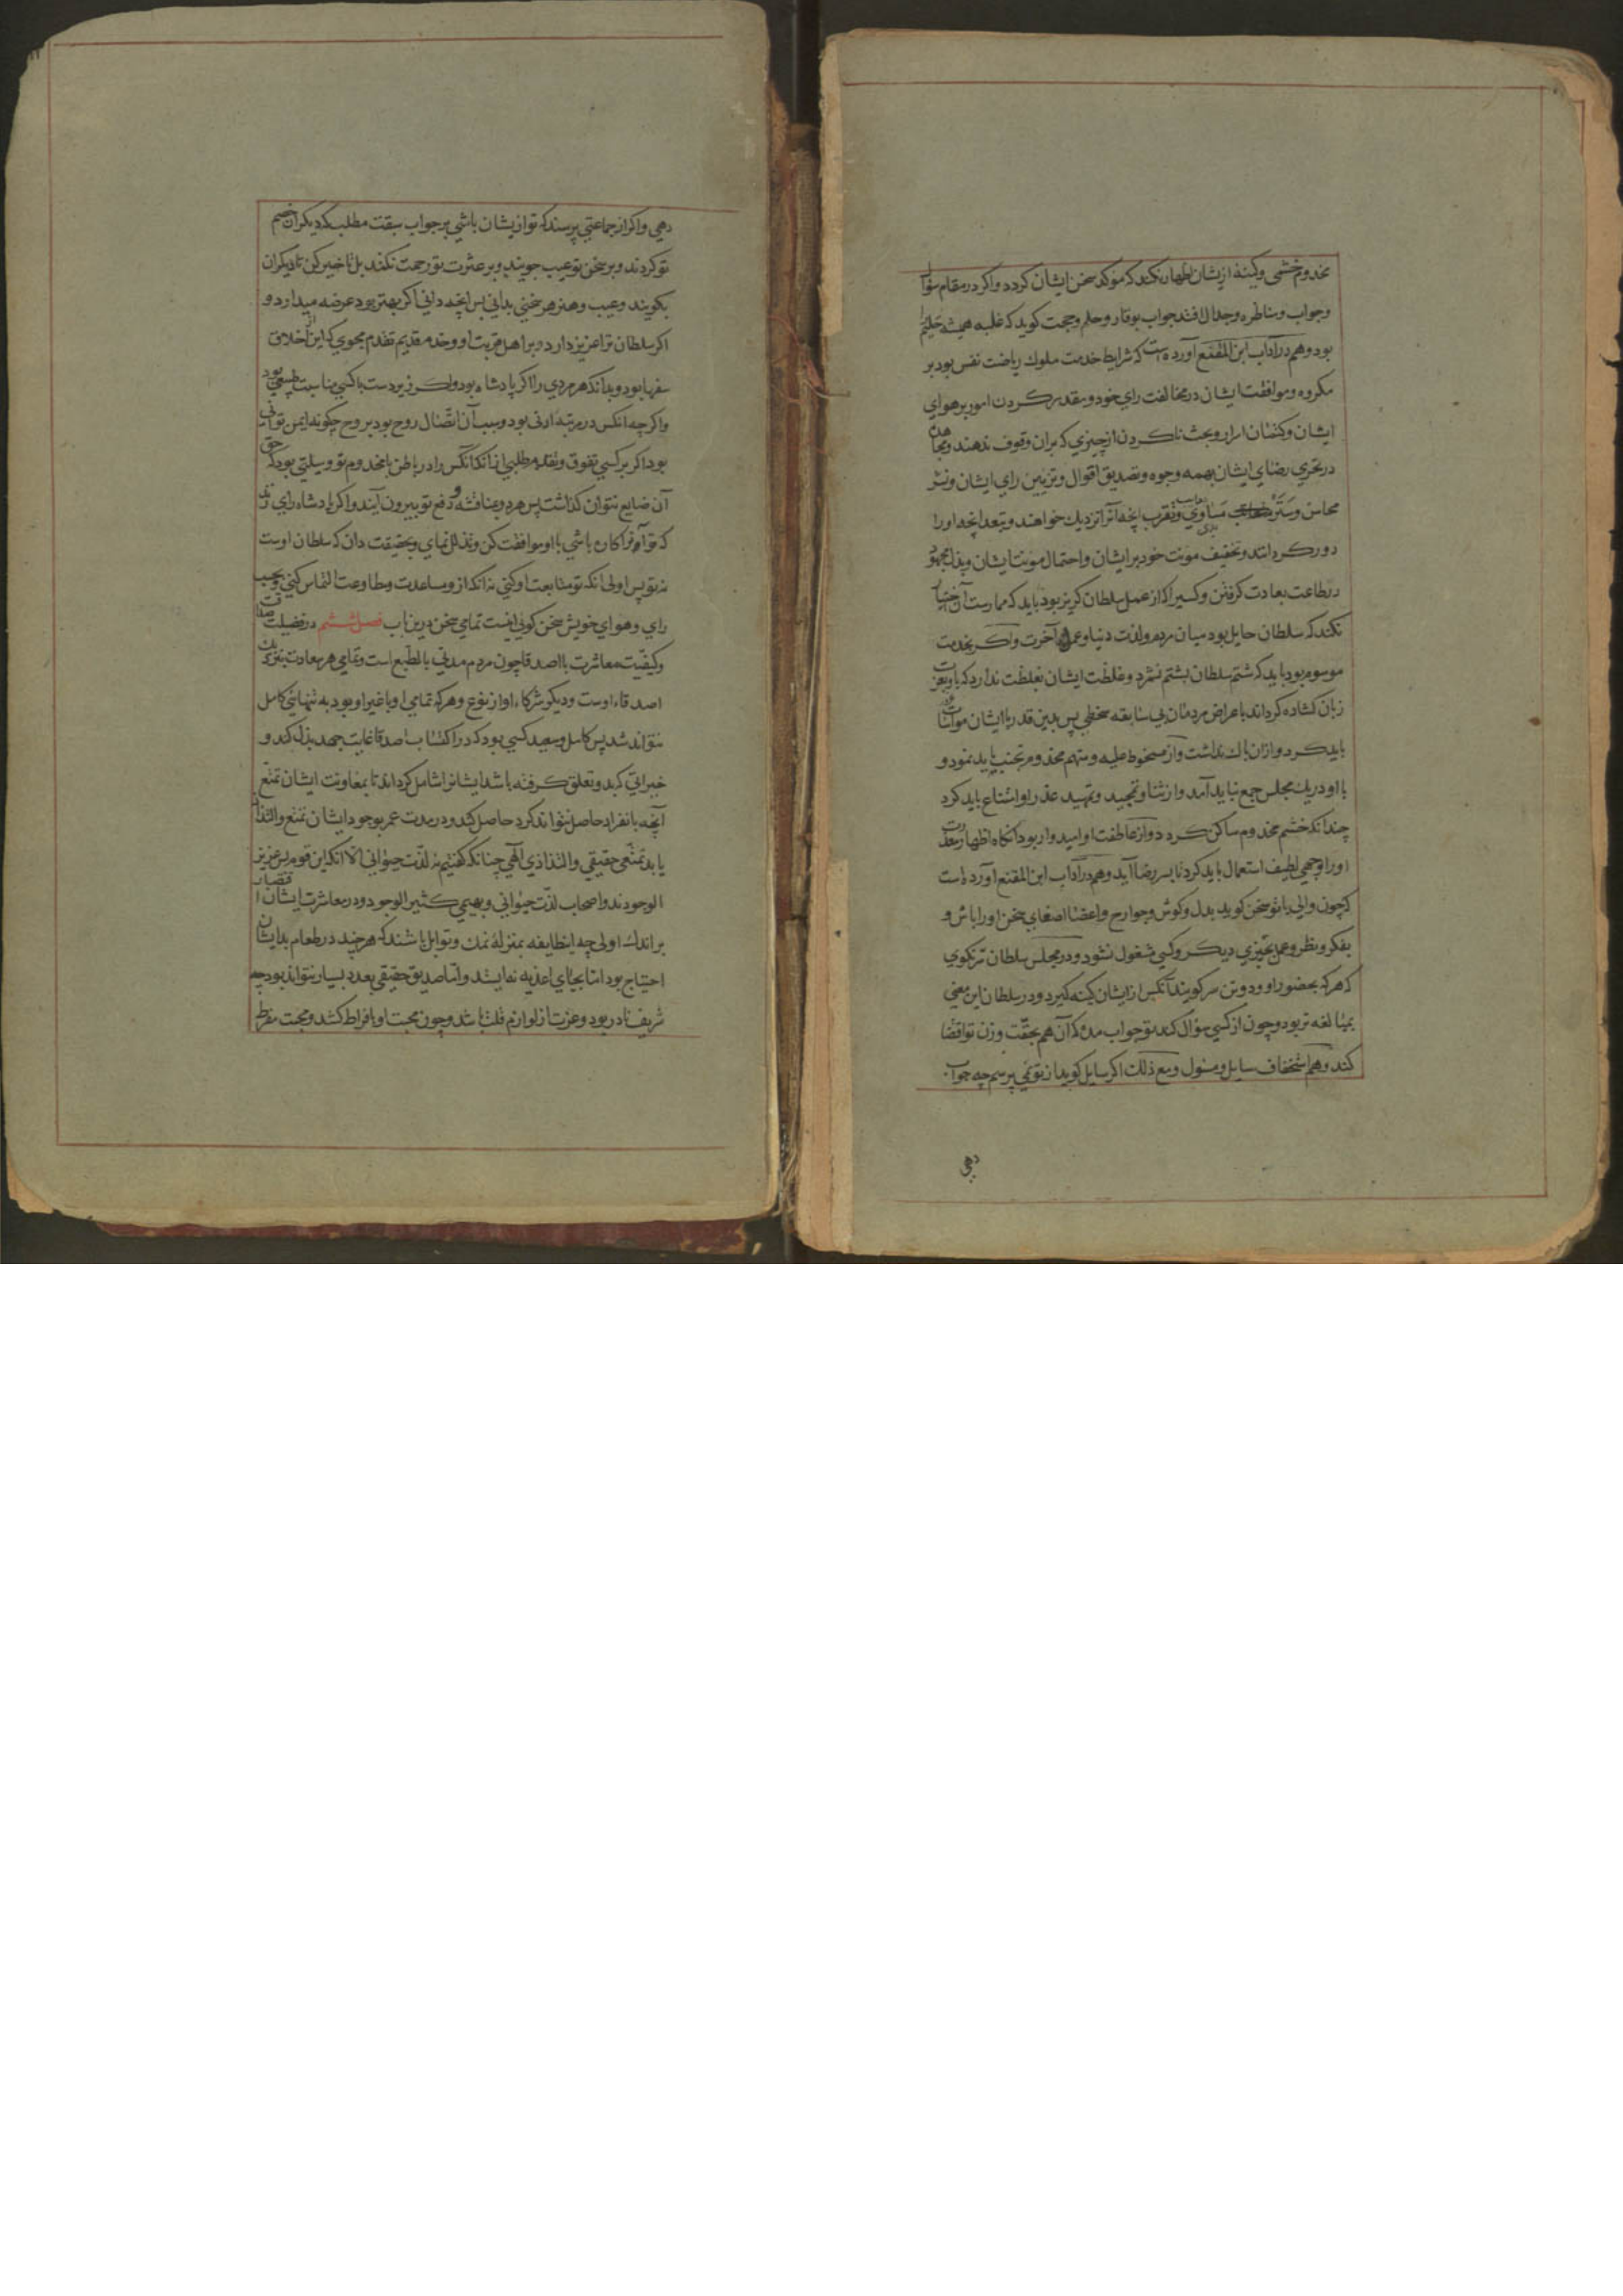 مخدوم خشمی وکینهٔ ازیشان اظهار نکند که موکد سخن ایشان کردد واکر در مقام سؤال
وجواب ومناظره وجدال افتد جواب بوقار وحلم وحجت کوید که غلبه همیشه حلیم را
بود وهم در آداب ابن المقفع آورده است که شرایط خدمت ملوک ریاضت نفس بود بر
مکروه وموافقت ایشان در مخالفت رای خود ومقدر کردن امور بر هوای
ایشان وکتمان اسرار وبحث ناکردن از چیزی که بران وقوف ندهند ومجاهده
در تحری رضای ایشان بهمه وجوه وتصدیق اقوال وتزیین رای ایشان ونشر
محاسن وستر مساوی وتقرب انچه آنرا نزدیک خواهند وتبعد انچه اورا
دور کردانند وتخفیف مونت خود بر ایشان واحتمال مونت ایشان وبذل مجهود
در طاعت بعادت کرفتن وکسی را که از عمل سلطان کریز بود باید که ممارست آن اختیار
نکند که سلطان حایل بود میان مردم ولذت دنیا وعمل آخرت واکر بخدمت
موسوم بود باید که شتم سلطان بشتم نشمرد وغلظت ایشان بغلظت ندارد که باد عزت
زبان کشاده کرداند باعراض مردمان بی سابقه سخطی پس بدین قدر با ایشان مواسات
باید کرد وازان باک نداشت واز مسخوط علیه ومتهم مخدوم تجنب باید نمود و
با او در یک مجلس جمع نباید آمد واز ثنا وتمجید وتمهید عذر او امتناع باید کرد
چندانکه خشم مخدوم ساکن کردد واز عاطفت او امیدوار بود آنکاه اظهار معذرت
اورا وجهی لطیف استعمال باید کرد تا بسر رضا آید وهم در آداب ابن المقنع آورده است
که چون والی با تو سخن کوید بدل وکوش وجوارح واعضا اصغای سخن اورا باش و
بفکر ونظر وعمل بچیزی دیکر وکسی مشغول نشود ودر مجلس سلطان سر نکوی
که هر که بحضور او دو تن سر کویند آنکس از ایشان کینه کیرد ودر سلطان این معنی
بمبالغه تر بود وچون از کسی سؤال کند تو جواب مده که آن هم بخفت وزن تو اقتضا
کند وهم استخفاف سایل ومسئول ومع ذلک اکر سایل کوید از تو نمی پرسم چه جواب
دهی
دهی واکر از جماعتی پرسند که تو ازیشان باشی بر جواب سبقت مطلب که دیکران خصم
تو کردند وبر سخن تو عیب جویند وبر عثرت تو رحمت نکنند بل تاخیر کن تا دیکران
بکویند وعیب وهنر هر سخنی بدانی پس انچه دانی اکر بهتر بود عرضه میدارد و
اکر سلطان ترا عزیز دارد وبر اهل قربت او وخدم قدیم تقدم مجوی که این از اخلاق
سفها بود وبدانکه هر مردی را اکر پادشاه بود واکر زیردست باکسی مناسبت طبیعی بود
واکر چه انکس در مرتبهٔ ادنی بود وسبب آن اتصال روح بود بروح چکونه ایمن توانی
بود اکر بر کسی تفوق وتقدم طلبی ازانکه انکس را در باطن با مخدوم تو وسیلتی بود که حق
آن ضایع نتوان کذاشت پس هردو بمناقشه ودفع تو بیرون آیند واکر پادشاه رای زند
که تو آنرا کاره باشی با او موافقت کن وتذلل نمای وبحقیقت دان که سلطان اوست
نه تو پس اولی انکه تو متابعت او کنی نه انکه ازو مساعدت ومطاوعت التماس کنی وبحسب
رای وهوای خویش سخن کویی اینست تمامی سخن درین باب فصل ششم در فضیلت صداقت
وکیفیت معاشرت با اصدقا چون مردم مدنی بالطبع است وتمامی هر سعادت بنزدیک
اصدقاء اوست ودیکر شرکاء او از نوع وهر که تمامی او باغیر او بود به تنهائی کامل
نتواند شد پس کامل وسعید کسی بود که در اکتساب اصدقا غایت جهد بذل کند و
خیراتی که بدو تعلق کرفته باشد ایشانرا شامل کرداند تا بمعاونت ایشان تمتع
آنچه بانفراد حاصل نتواند کرد حاصل کند ودر مدت عمر بوجود ایشان تمتع والتذاذ
یابد تمتعی حقیقی والتذاذی الهی چنانکه کفتیم نه لذت حیوانی الا انکه این قوم بس عزیز
الوجودند واصحاب لذت حیوانی وبهیمی کثیر الوجود ودر معاشرت ایشان اقتصار
بر اندک اولی چه این طایفه بمنزلهٔ نمک وتوابل باشند که هر چند در طعام بدیشان
احتیاج بود اما بجای اغذیه نه ایستد واما صدیق حقیقی بعدد بسیار نتواند بود چه
شریف نادر بود وعزت از لوازم قلت باشد وچون محبت او بافراط کشد ومحبت مفرط